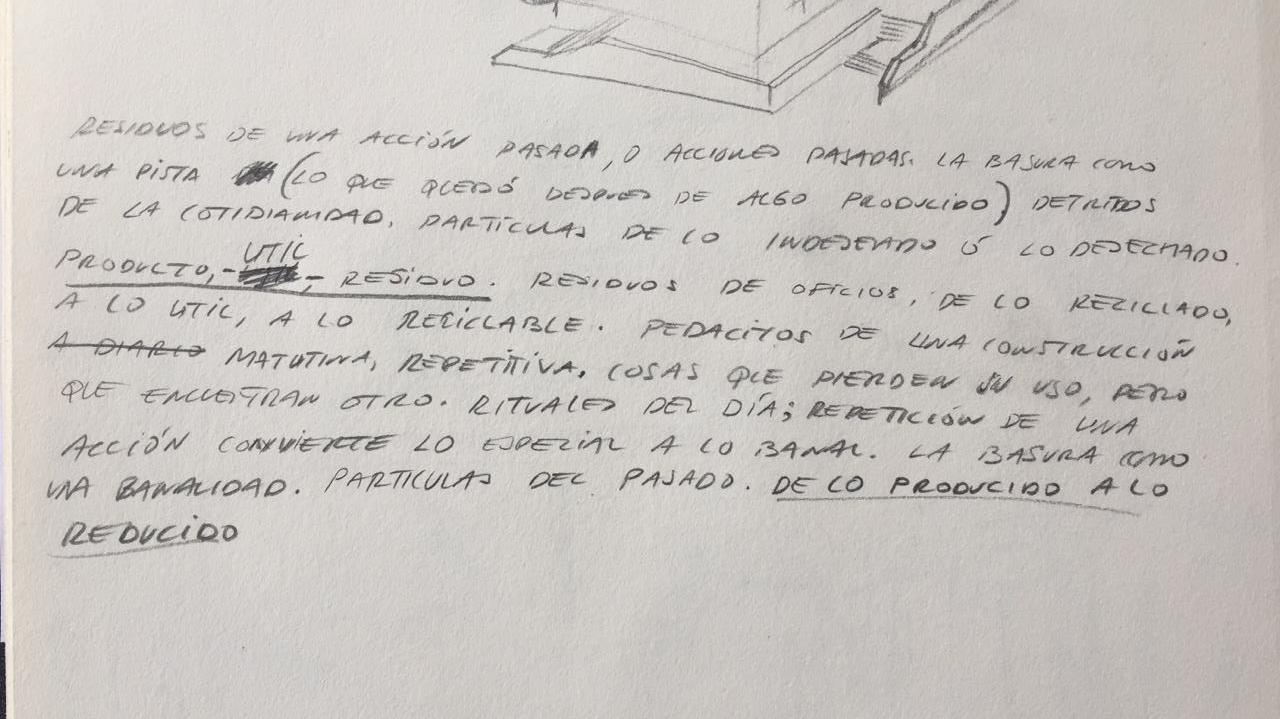 RESIDUOS DE UNA ACCIÓN PASADA, O ACCIONES PASADAS. LA BASURA COMO
UNA PISTA (LO QUE QUEDÓ DESPUES DE ALGO PRODUCIDO) DETRITOS
DE LA COTIDIANIDAD. PARTÍCULAS DE LO INDESEADO Ó LO DESECHADO.
UTIL
PRODUCTO, - - RESIDUO. RESIDUOS DE OFICIOS, DE LO REZICLADO,
A LO UTIL, A LO RECICLABLE. PEDACITOS DE UNA CONSTRUCCIÓN
A DIARIO MATUTINA, REPETITIVA. COSAS QUE PIERDEN SU USO, PERO
QUE ENCUENTRAN OTRO. RITUALES DEL DÍA; REPETICIÓN DE UNA
ACCIÓN CONVIERTE LO ESPEZIAL A LO BANAL. LA BASURA COMO
UNA BANALIDAD. PARTICULAS DEL PASADO. DE LO PRODUCIDO A LO
REDUCIDO